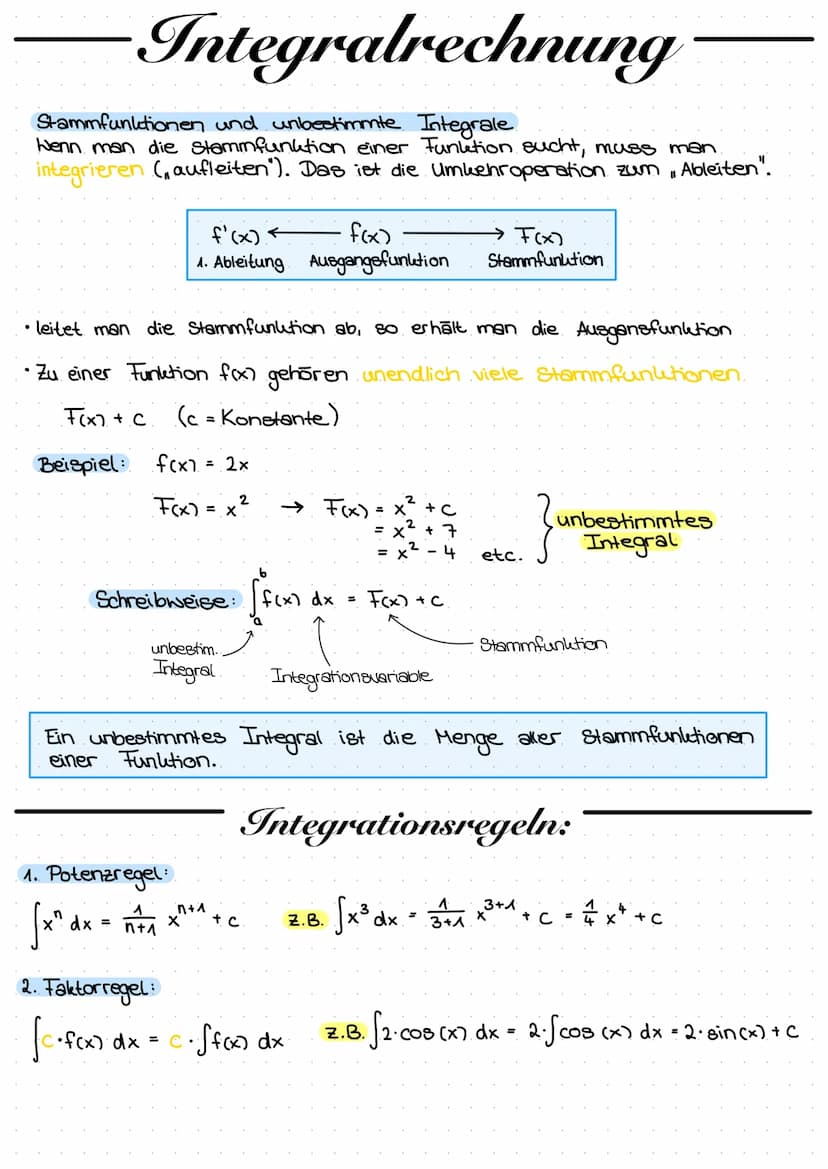 Integralrechnung
Stammfunktionen und unbestimmte Integrale
Wenn man die Stammfunktion einer Funktion sucht, muss man
integrieren („aufleiten"). Das ist die Umkehroperation zum „Ableiten".
f'(x) ← f(x) → F(x)
1. Ableitung Ausgangsfunktion Stammfunktion
• leitet man die Stammfunktion ab, so erhält man die Ausgansfunktion
• Zu einer Funktion f(x) gehören unendlich viele Stammfunktionen
F(x) + c (c = Konstante)
Beispiel: f(x) = 2x
F(x) = x² → F(x) = x² + c
= x² + 7
= x² - 4 etc.
unbestimmtes
Integral
Schreibweise: ∫ₐᵇ f(x) dx = F(x) + c
unbestim.
Integral
Integrationsvariable
Stammfunktion
Ein unbestimmtes Integral ist die Menge aller Stammfunktionen
einer Funktion.
Integrationsregeln:
1. Potenzregel:
∫xⁿ dx = 1/(n+1) xⁿ⁺¹ + c z.B. ∫x³ dx = 1/(3+1) x³⁺¹ + c = 1/4 x⁴ + c
2. Faktorregel:
∫c·f(x) dx = c·∫f(x) dx z.B. ∫2·cos(x) dx = 2·∫cos(x) dx = 2·sin(x) + c